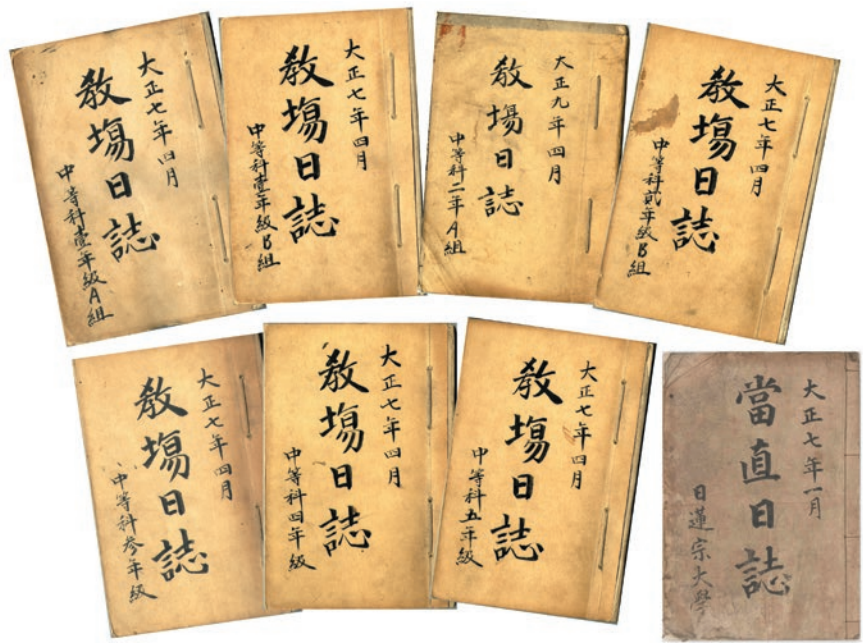 大正七年四月
教場日誌
中等科壹年級A組
大正七年四月
教場日誌
中等科壹年級B組
大正九年四月
教場日誌
中等科二年A組
大正七年四月
教場日誌
中等科貳年級B組
大正七年四月
教場日誌
中等科参年級
大正七年四月
教場日誌
中等科四年級
大正七年四月
教場日誌
中等科五年級
大正七年一月
當直日誌
日蓮宗大學